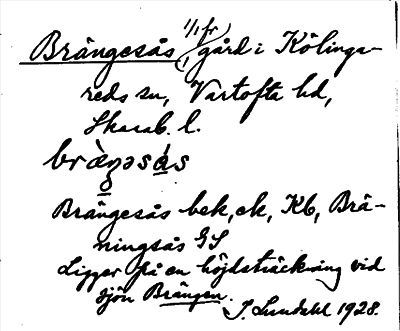 Brängesås 1/1 fr gård i Kölinga-
reds sn, Vartofta hd,
Skarab. l.
bræ̀ŋəsás
Brängesås bek, ek, Kb, Brä-
ningsås GS
Ligger på en höjdsträckning vid
sjön Brängen.
I. Lundahl 1928.